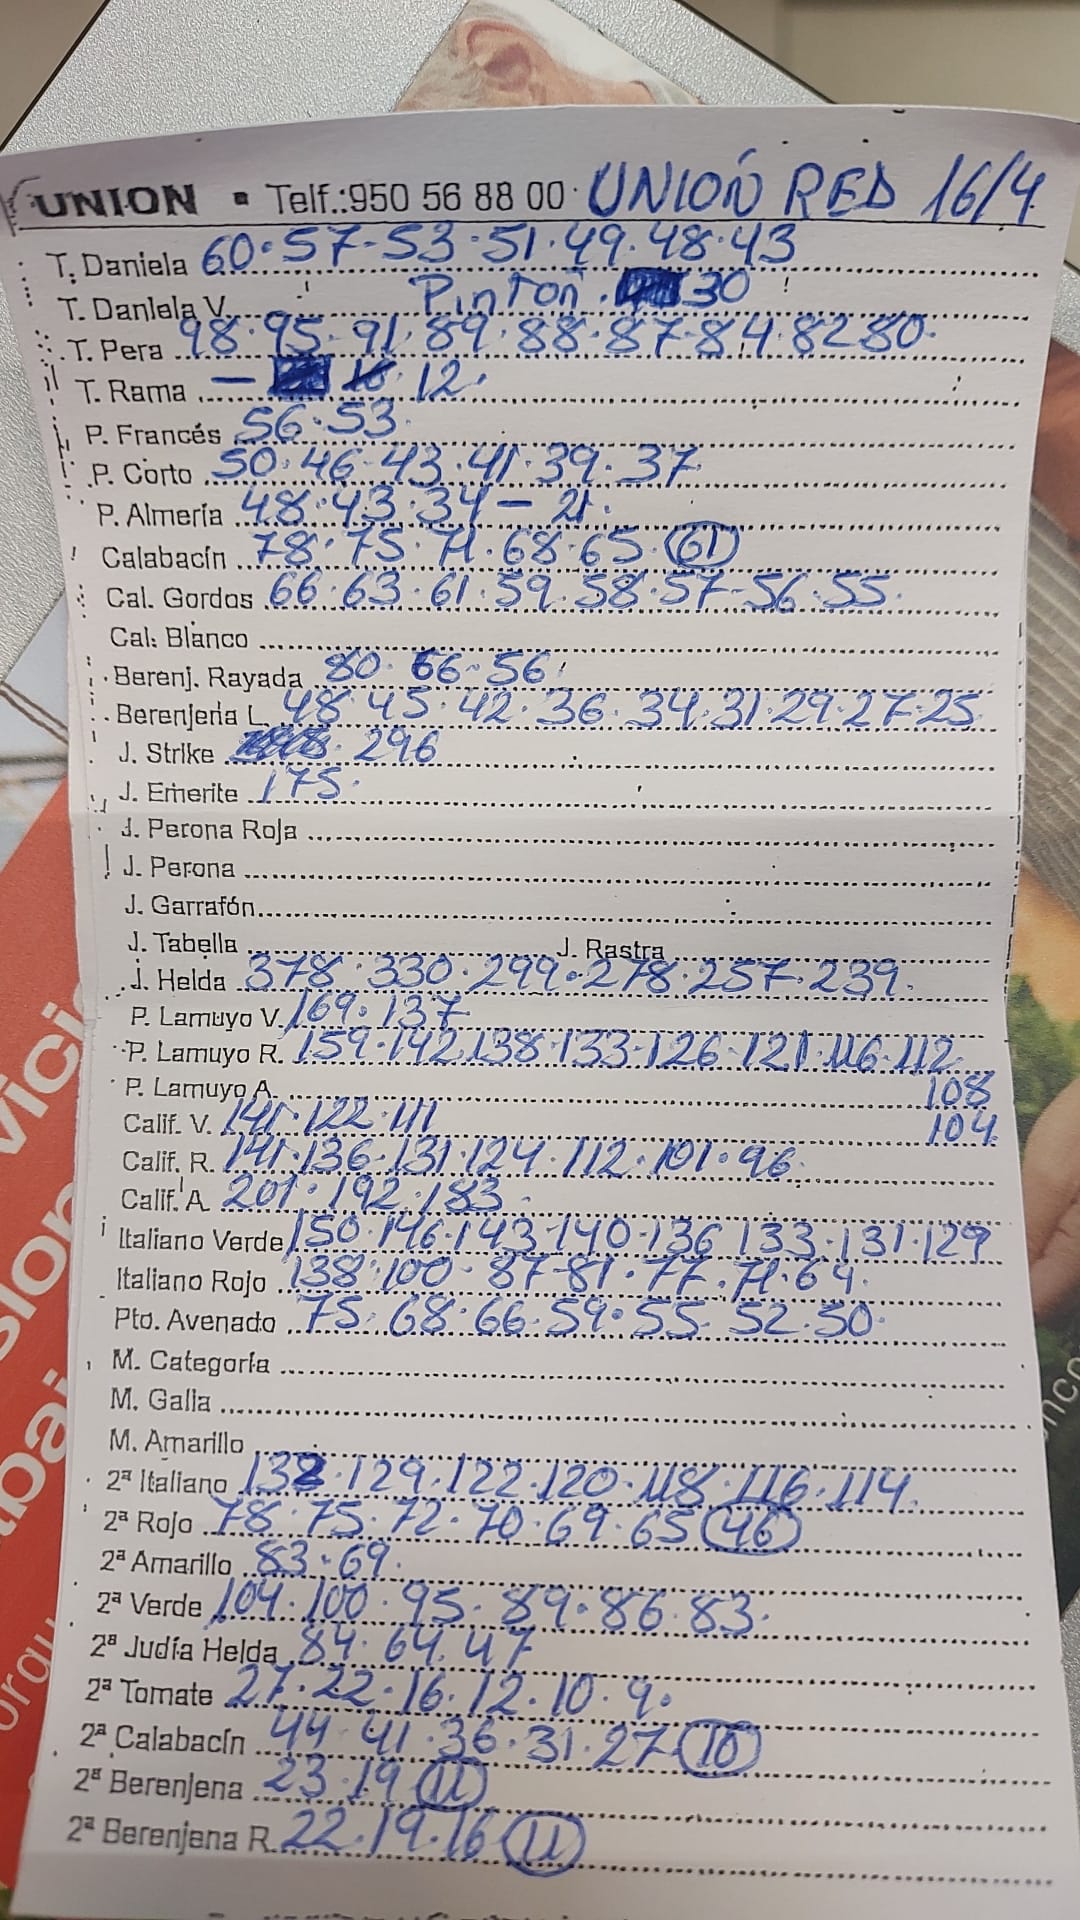 UNION ▪ Telf.:950 56 88 00 · UNIÓN RED 16/4
T. Daniela 60·57-53·51·49·48·43
T. Daniela V. Pinton · 30
T. Pera 98·95·91·89·88·87-84·82 80·
T. Rama – 12·
P. Francés 56·53·
P. Corto 50·46-43·41·39·37
P. Almería 48·43·34 – 21·
Calabacín 78·75·71·68·65·(61)
Cal. Gordos 66·63·61·59·58·57-56·55·
Cal. Blanco
Berenj. Rayada 80·66-56
Berenjena L. 48·45·42·36·34·31·29·27·25
J. Strike 296
J. Emerite 175·
J. Perona Roja
J. Perona
J. Garrafón
J. Tabella J. Rastra
J. Helda 378·330·299·278·257·239·
P. Lamuyo V. 169·137
P. Lamuyo R. 159·142·138·133·126·121·116·112
P. Lamuyo A. 108
Calif. V. 141·122·111 104
Calif. R. 141·136-131·124·112·101·96·
Calif. A. 201·192·183·
Italiano Verde 150·146·143-140·136·133·131·129
Italiano Rojo 138·100·87-81·77·71·64·
Pto. Avenado 75·68·66·59·55·52·50·
M. Categoría
M. Galia
M. Amarillo
2ª Italiano 132·129·122·120·118·116·114·
2ª Rojo 78·75·72·70·69·65 (46)
2ª Amarillo 83·69·
2ª Verde 104·100·95·89·86·83·
2ª Judía Helda 84·64·47
2ª Tomate 27·22·16·12·10·9·
2ª Calabacín 44·41·36·31·27 (10)
2ª Berenjena 23·19 (11)
2ª Berenjena R. 22·19·16 (11)